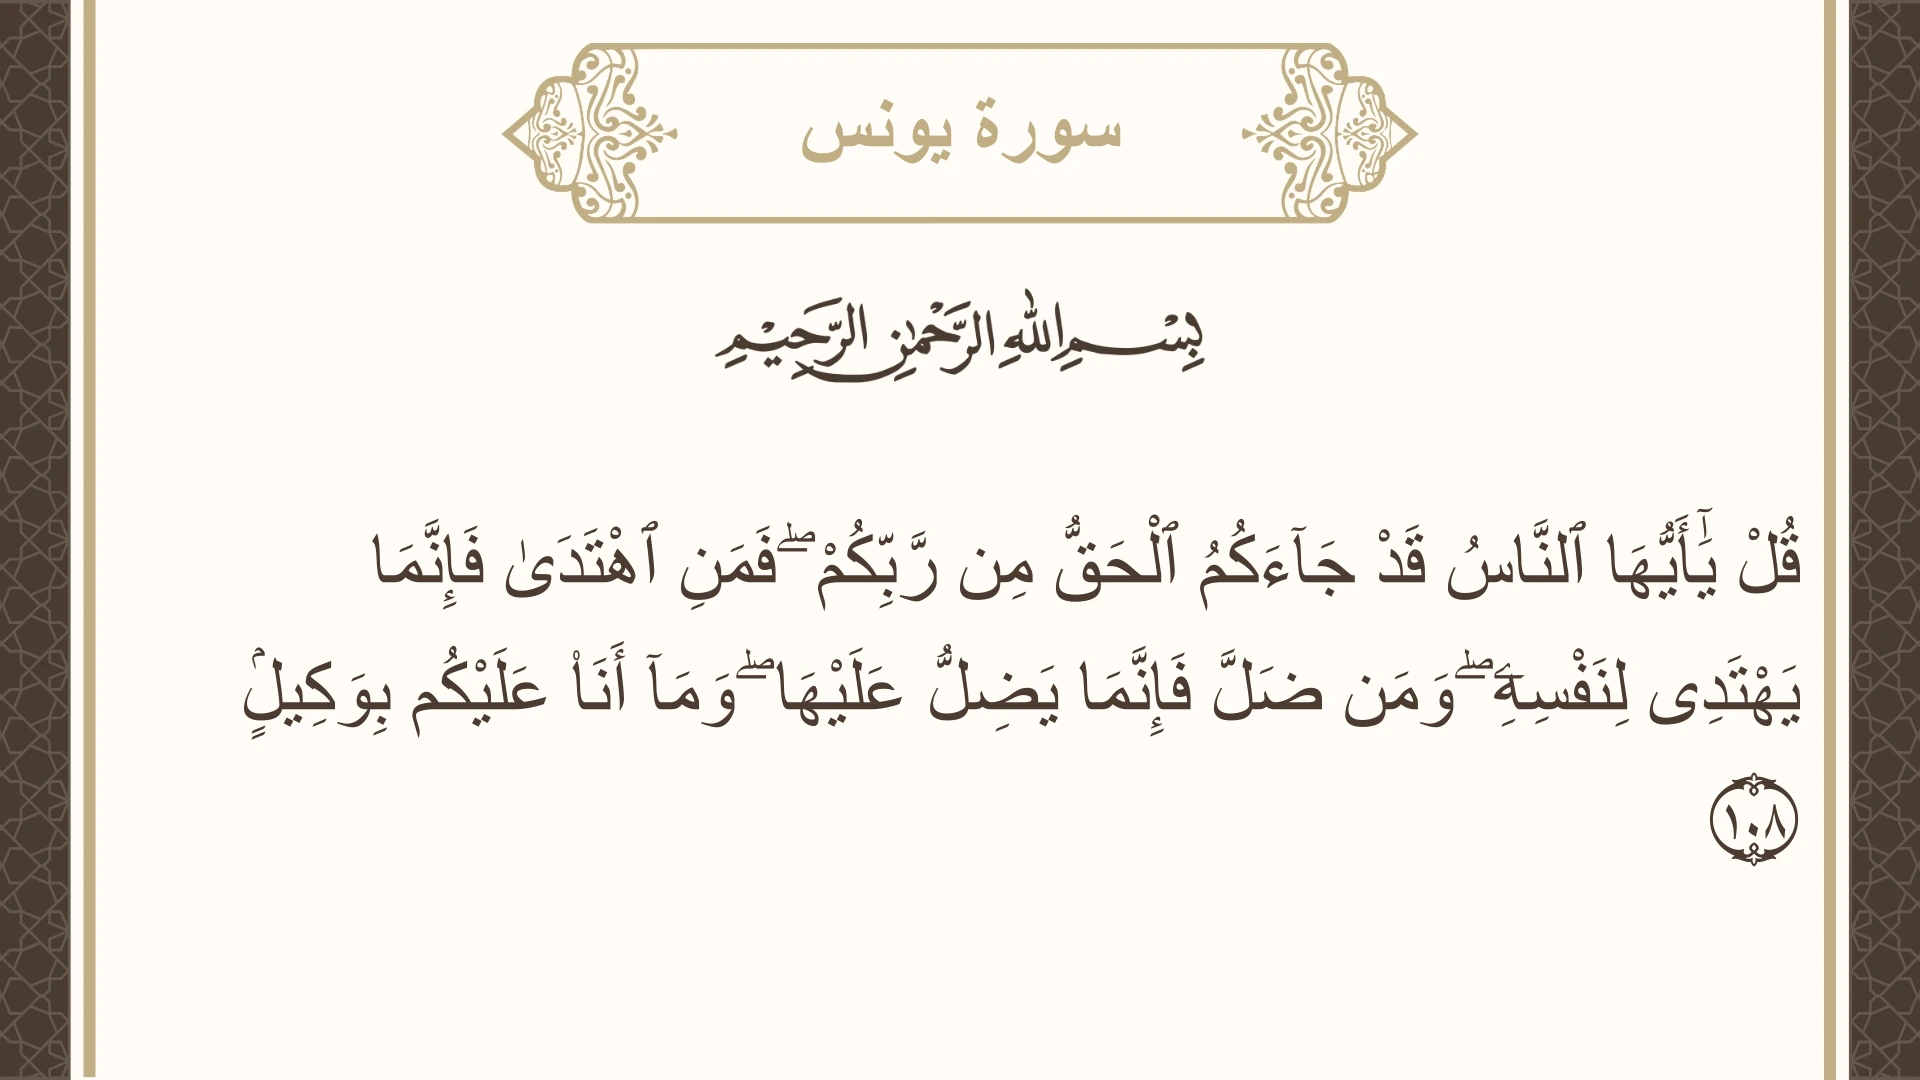 سورة يونس
بِسْمِ اللهِ الرَّحْمٰنِ الرَّحِيْمِ
قُلْ يَٰٓأَيُّهَا ٱلنَّاسُ قَدْ جَآءَكُمُ ٱلْحَقُّ مِن رَّبِّكُمْ ۖ فَمَنِ ٱهْتَدَىٰ فَإِنَّمَا
يَهْتَدِى لِنَفْسِهِۦ ۖ وَمَن ضَلَّ فَإِنَّمَا يَضِلُّ عَلَيْهَا ۖ وَمَآ أَنَا۠ عَلَيْكُم بِوَكِيلٍۢ
١٠٨